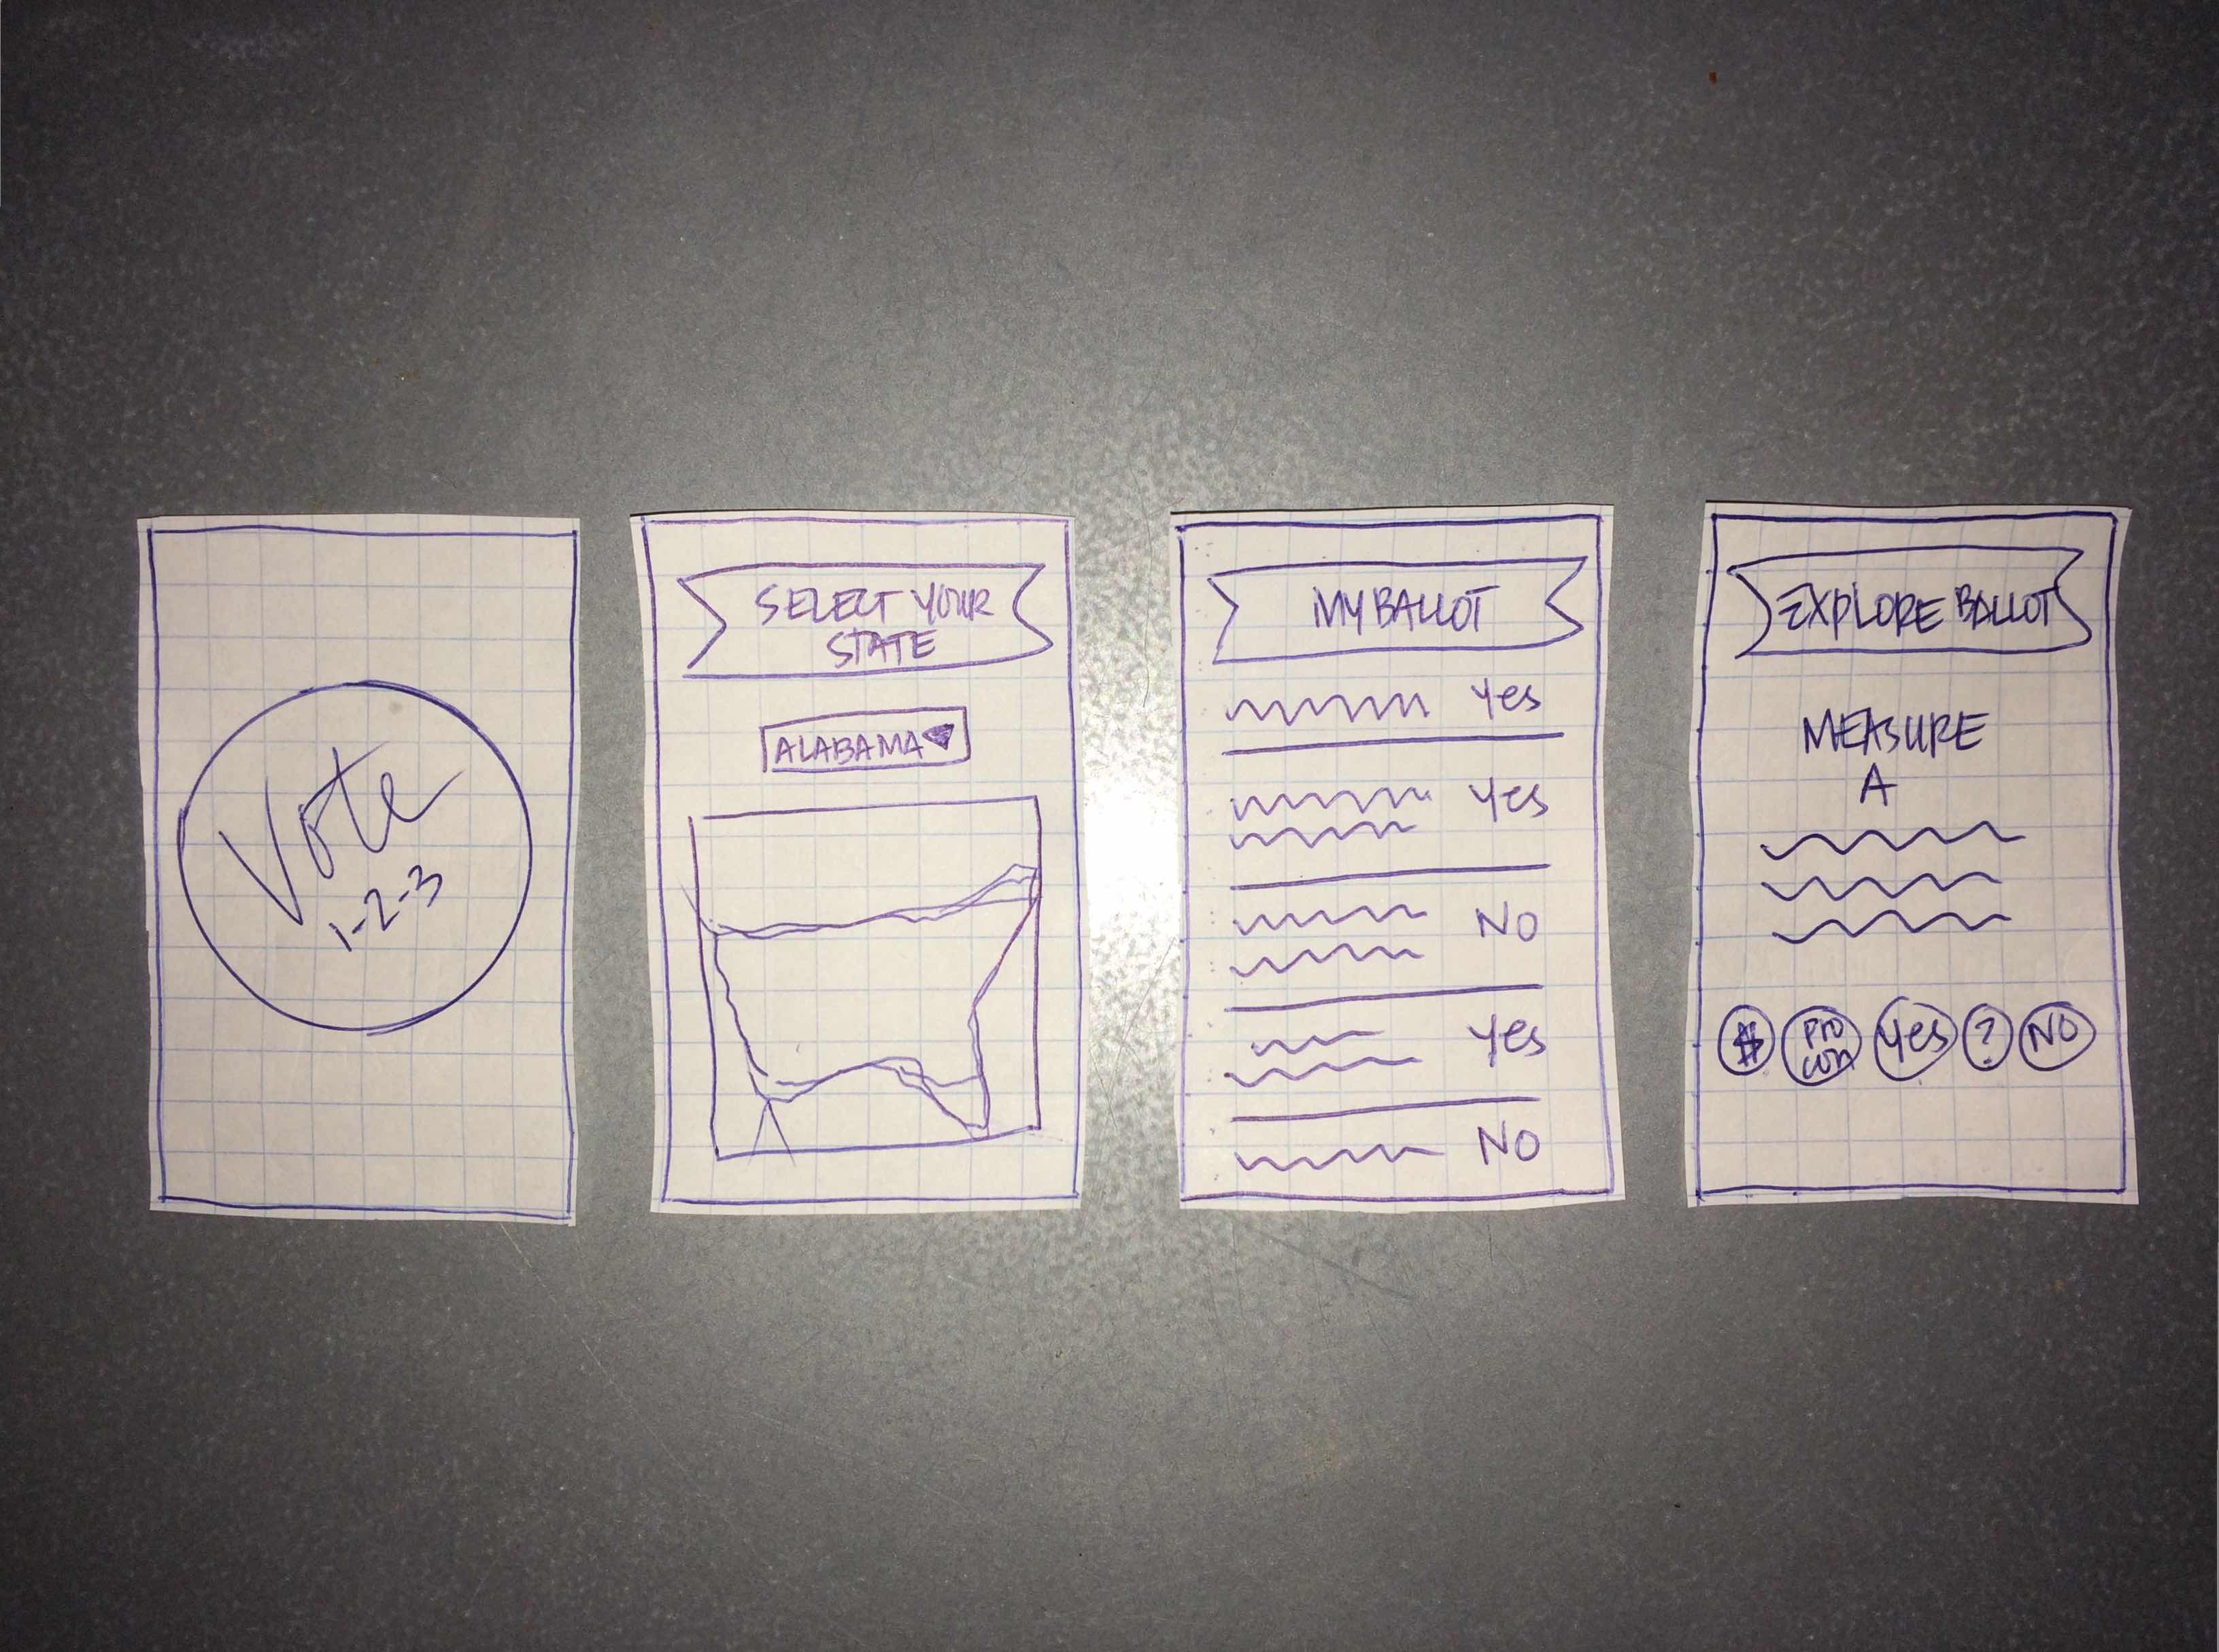 Vote
1-2-3
SELECT YOUR
STATE
ALABAMA
MY BALLOT
Yes
Yes
NO
Yes
NO
EXPLORE BALLOT
MEASURE
A
$ Pro con Yes ? NO